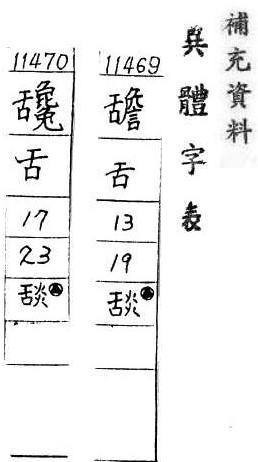 補充資料
異體字表
11469
舚
舌
13
19
舕
11470
舌
17
23
舕